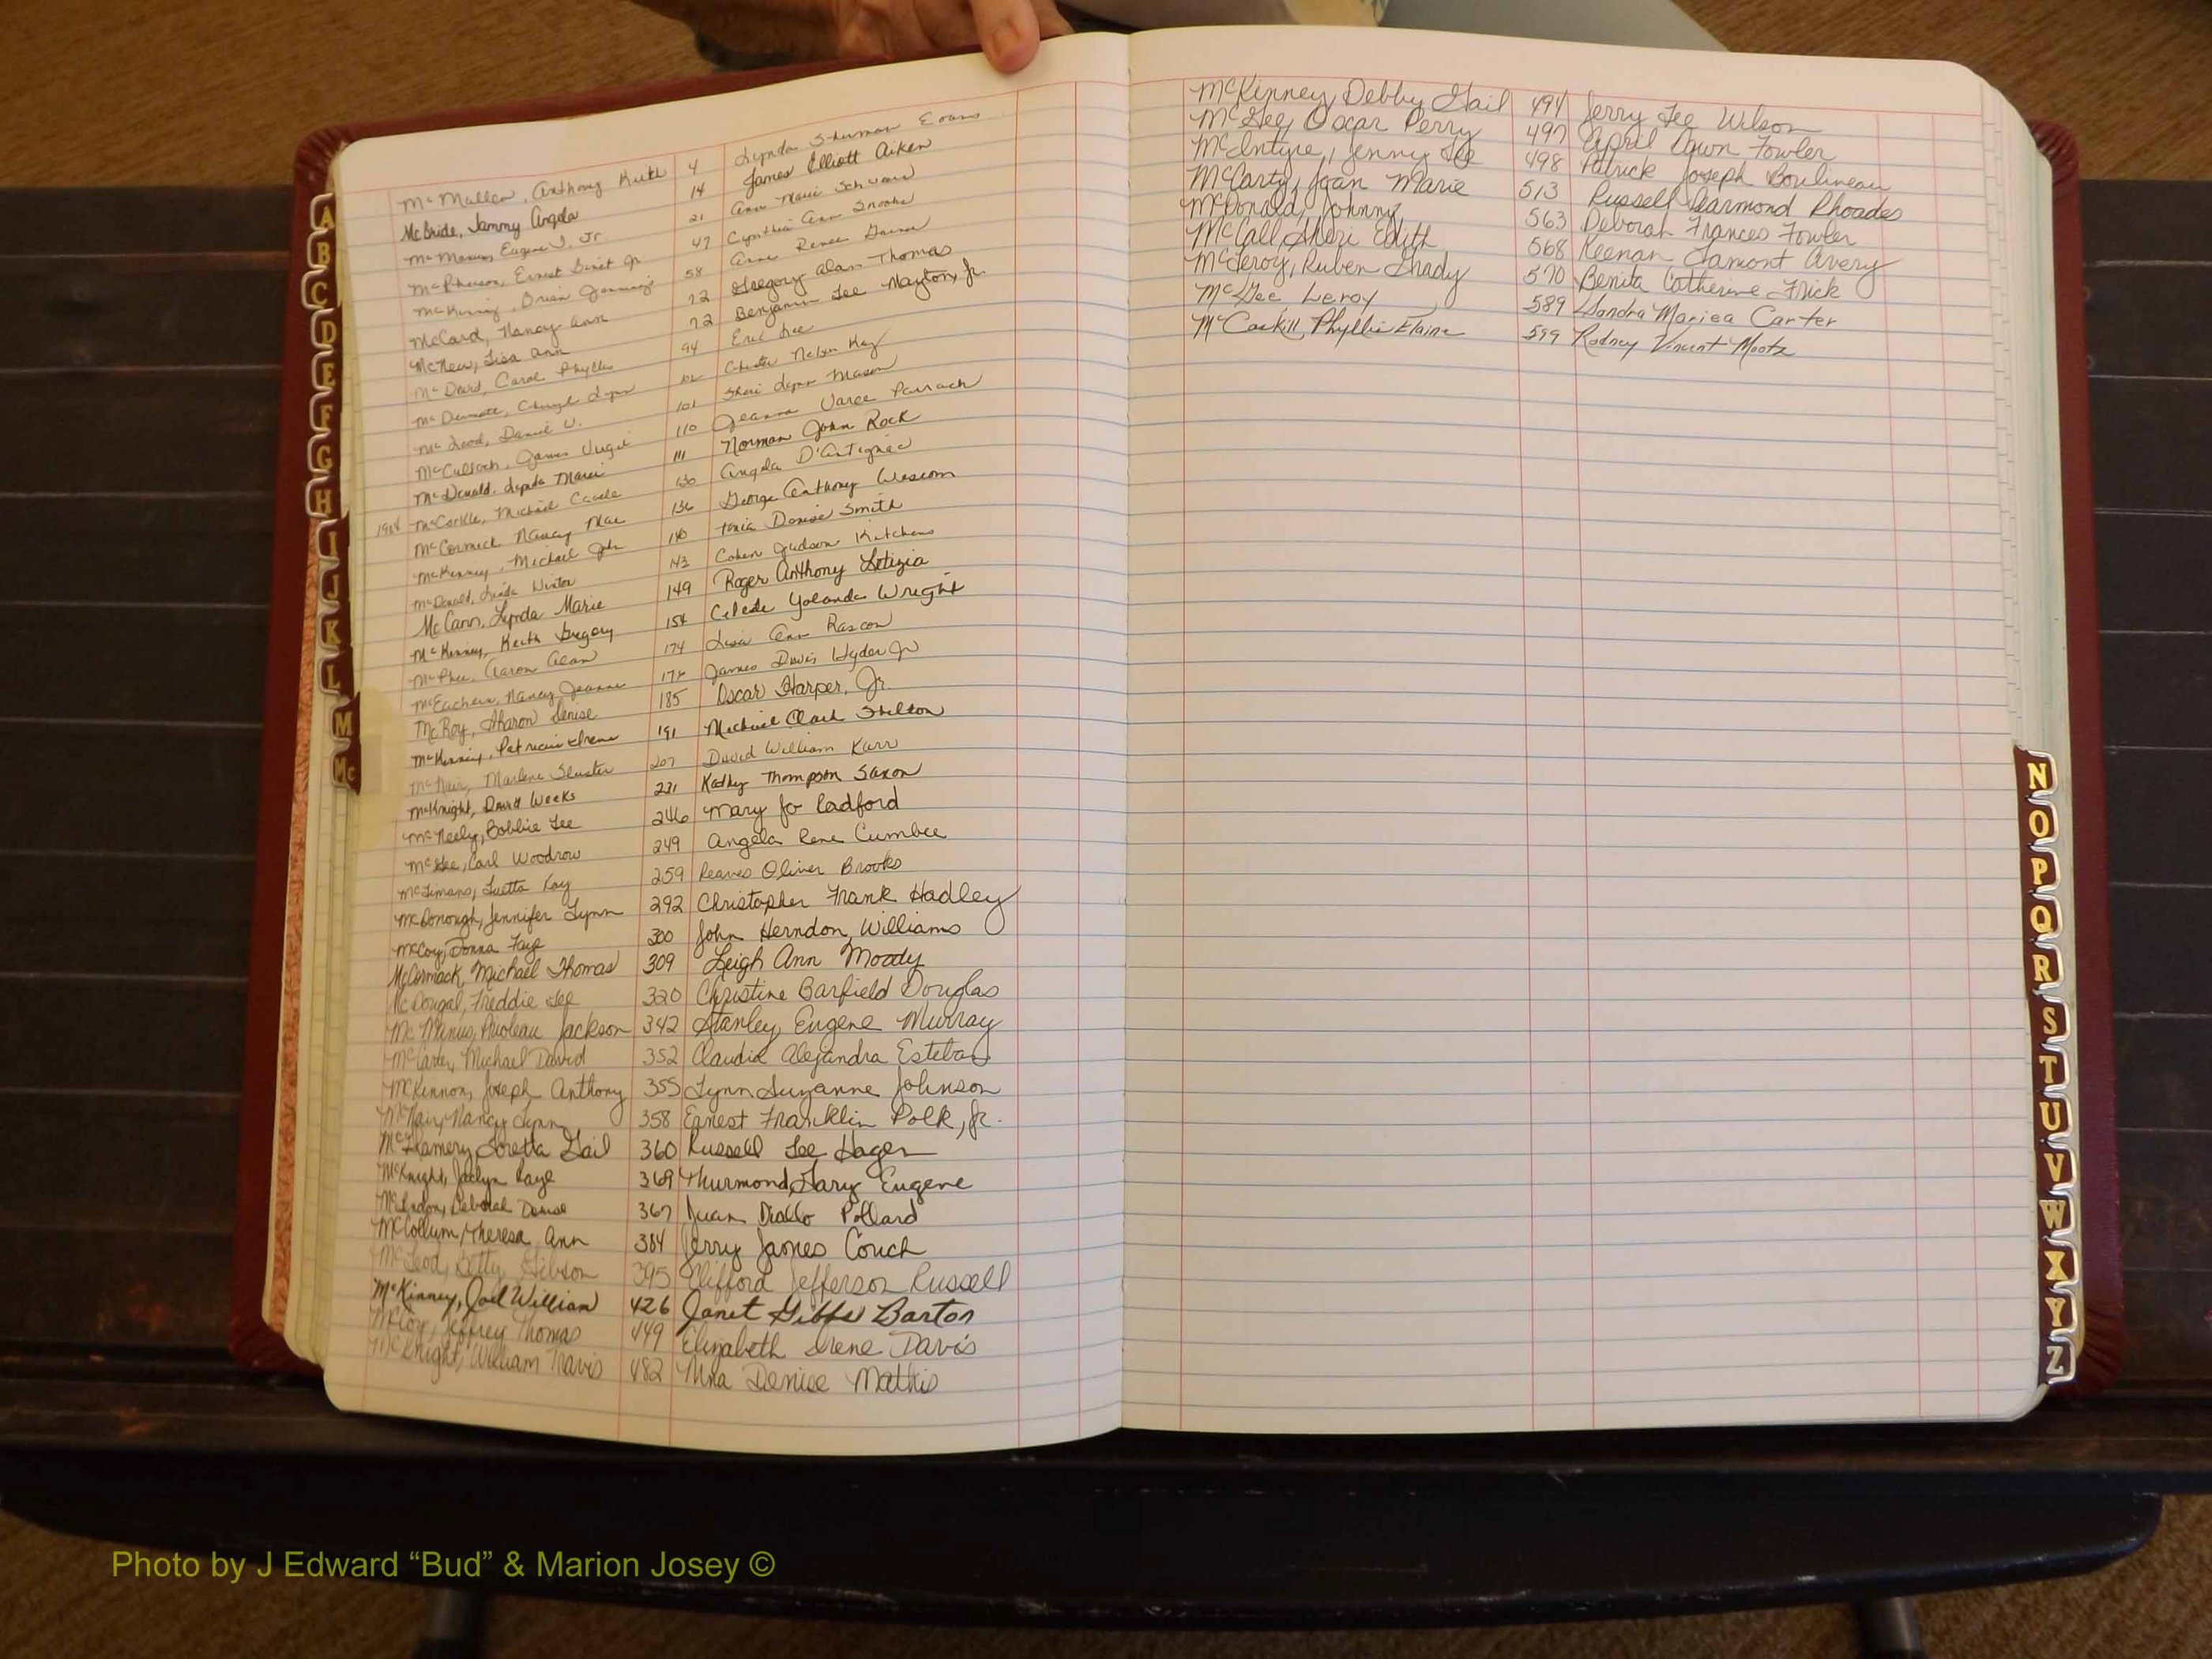 McMullen, Anthony Keith 4 Lynda Sherman Evans
McBride, Tammy Angela 14 James Elliott Aiken
McManus, Eugene J. Jr. 21 Ann Marie Schwarz
McPherson, Ernest Jr 47 Cynthia Ann Snooks
McKinney, Brian Jennings 58 Anne Renee
McCard, Nancy Ann 72 Gregory Alan Thomas
McNew, Lisa Ann 72 Benjamin Lee Mayton, Jr.
Carol Phyllis 94 Eric Lee
McDermott, Cheryl Lynn 102 Chester Nelson Kay
McLeod, Daniel W. 101 Sheri Lynn Mason
McCulloch, James Virgil 110 Jeanna Varee Parrach
McDonald, Lynda Marie 111 Norman John Rock
McCorkle, Michael Angela D'Antignac
McCormick Nancy Mae 136 George Anthony Wescom
McKinney, Michael John 140 Denise Smith
McDonald, Linda Winton 143 Cohen Judson Kitchens
McCann, Lynda Marie 149 Roger Anthony Letizia
McKinney, Keith Gregory 154 Celeste Yolanda Wright
McPhee, Aaron Alan 174 Lisa Ann Rascon
McEachern, Nancy Jeanne James Davis Hyder Jr
McRoy, Sharon Denise 185 Oscar Harper, Jr.
McKinney, Patricia Irene 191 Michael Clark Shelton
McNair, Marlene 207 David William Karr
McKnight, David Weeks 231 Kathy Thompson Saxon
McNeely, Bobbie Lee 246 Mary Jo Ladford
McGee, Carl Woodrow 249 Angela Rene Cumbee
McLimans, Luetta Kay 259 Reaves Oliver Brooks
McDonough, Jennifer Lynn 292 Christopher Frank Hadley
McCoy, Donna Faye 300 John Herndon Williams
McCormack, Michael Thomas 309 Leigh Ann Moody
McDougal, Freddie Lee 320 Christine Barfield Douglas
McManus, Jackson 342 Stanley Eugene Murray
McCarter, Michael David 352 Claudia Alejandra Esteban
McKinnon, Joseph Anthony 355 Lynn Suzanne Johnson
McNair, Nancy Lynn 358 Ernest Franklin Polk, Jr.
McFlamery, Loretta Gail 360 Russell Lee Hager
McKnight, Jaclyn Kaye 369 Thurmond, Gary Eugene
McLendon, Deborah Denise 367 Juan Diallo Pollard
McCollum, Theresa Ann 384 Jerry James Couch
McLeod, Betty Gibson 395 Clifford Jefferson Russell
McKinney, Joel William 426 Janet Gibbs Barton
McCoy, Jeffrey Thomas 449 Elizabeth Irene Davis
McKnight, William Travis 482 Denise Mathis
McKinney, Debby Gail 494 Jerry Lee Wilson
McGee, Oscar Perry 497 April Dawn Fowler
McIntyre, Jenny Lee 498 Patrick Joseph Boulineau
McCarty, Joan Marie 513 Russell Dearmond Rhoades
McDonald, Johnny 563 Deborah Frances Fowler
McCall, Sheri Edith 568 Keenan Lamont Avery
McLeroy, Ruben Grady 570 Benita Catherine Frick
McGee Leroy 589 Sandra Mariea Carter
McCaskill, Phyllis Elaine 599 Rodney Vincent Mootz
A
B
C
D
E
F
G
H
I
J
K
L
M
Mc
N
O
P
Q
R
S
T
U
V
W
X
Y
Z
Photo by J Edward “Bud” & Marion Josey ©